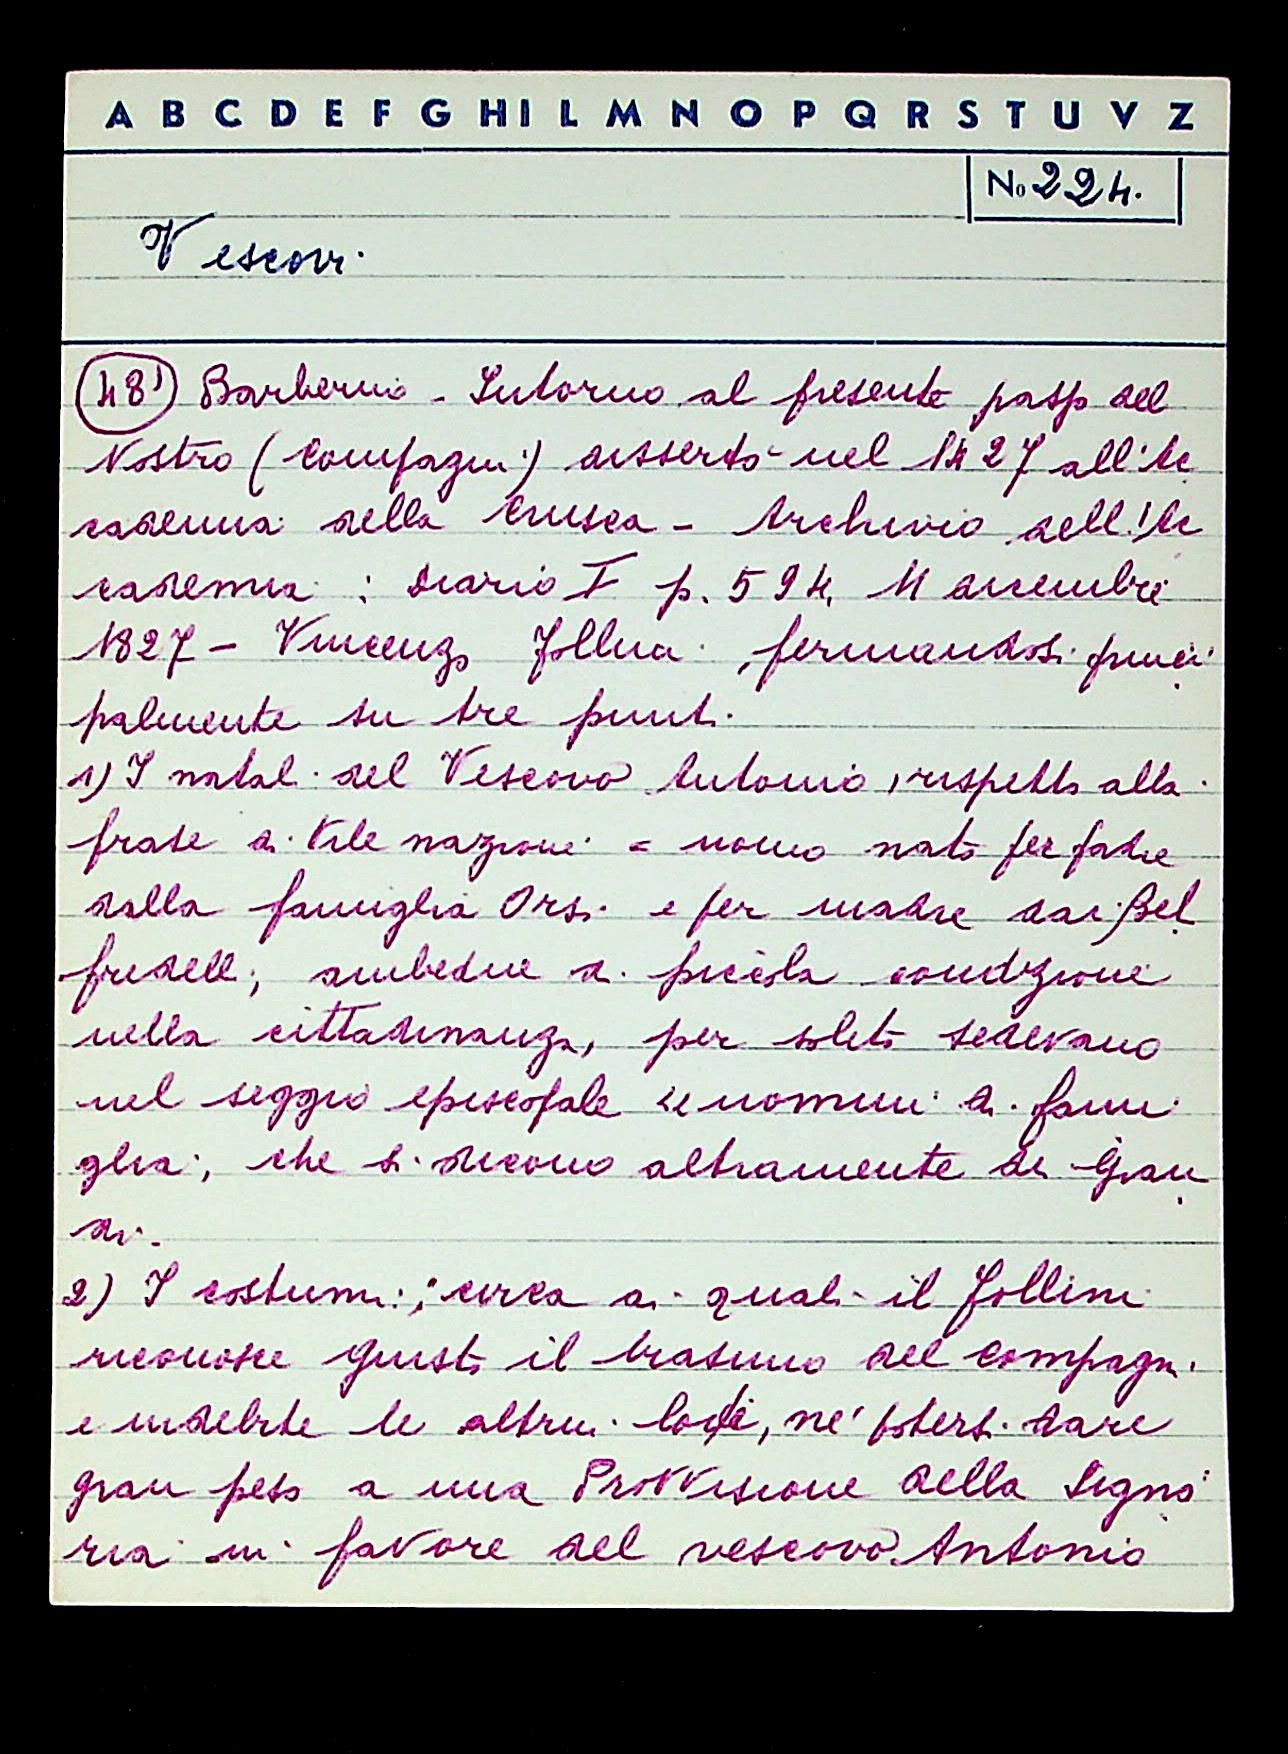 A B C D E F G H I L M N O P Q R S T U V Z
No 224.
Vescovi.
48) Barberino - Intorno al presente passo del
Nostro (Compagni) dissertò nel 1427 all'Ac
cademia della Crusca - Archivio dell'Ac
cademia : Diario I p. 594, 11 dicembre
1827 - Vincenzo Follini, fermandosi princi
palmente su tre punti.
1) I natali del Vescovo Antonio, rispetto alla
frase di vile nazione = uomo nato per padre
dalla famiglia Orsi e per madre dai Bel
fredelli, ambedue di piccola condizione
nella cittadinanza, per solito sedevano
nel seggio episcopale "uomini di fami
glia, che si dicono altramente di Gran
di.
2) I costumi; circa ai quali il Follini
riconosce giusto il biasimo del Compagni
e indebite le altrui lodi, né potersi dare
gran peso a una Provvisione della Signo
ria in favore del vescovo Antonio